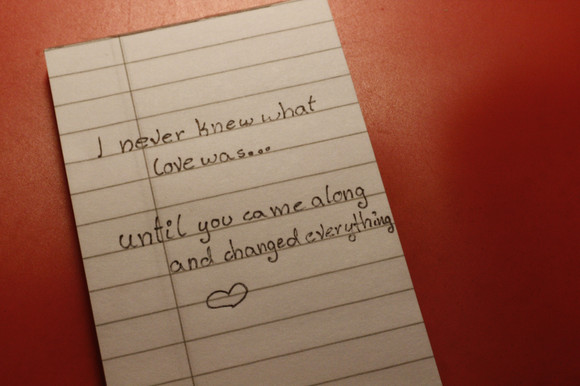 I never knew what
love was...
until you came along
and changed everything